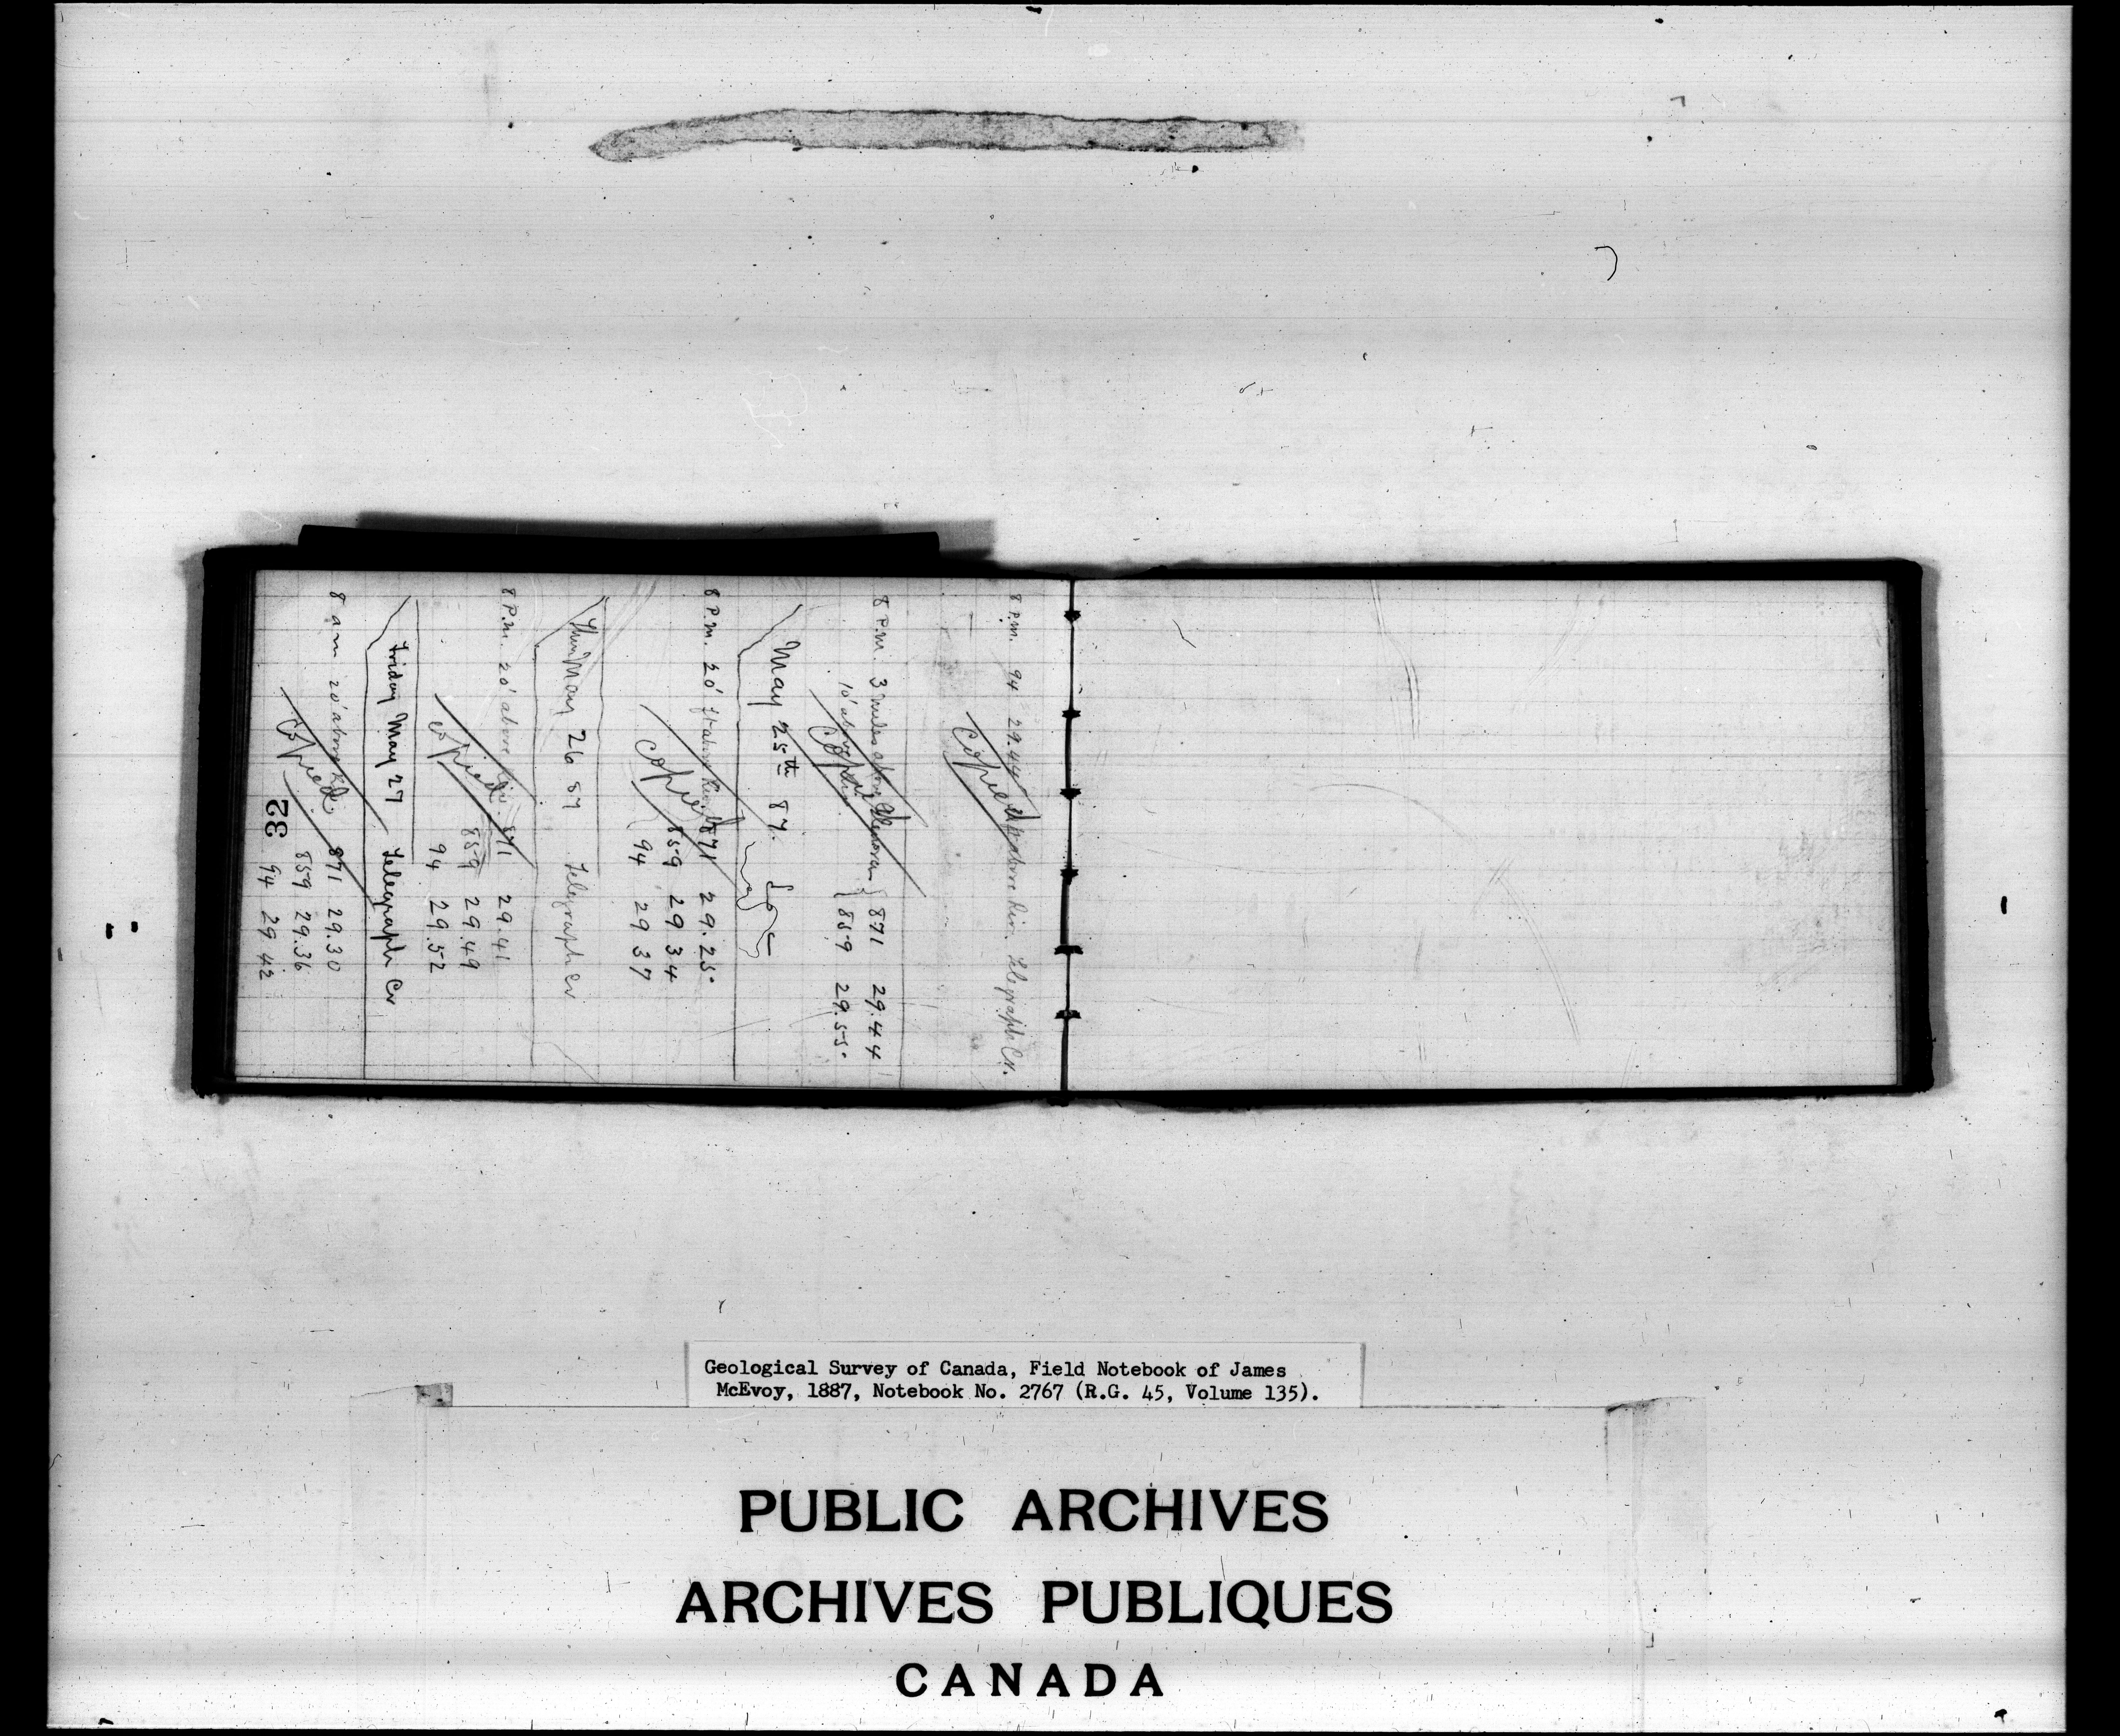 8 P.m. 94 29.44 above Riv. Telegraph Cr.
Copied
8 P.m. 3 miles above { 871 29.44
10' above { 859 29.55
Copied
May 25th 87.
8 P.m. 20' above 871 29.25
859 29 34
94 29 37
Copied
Thur May 26 87 Telegraph Cr
8 P.m. 20' above Riv 871 29.41
859 29.49
94 29.52
Copied
Friday May 27 Telegraph Cr
8 am 20' above 871 29.30
859 29.36
94 29 42
Copied
32
Geological Survey of Canada, Field Notebook of James
McEvoy, 1887, Notebook No. 2767 (R.G. 45, Volume 135).
PUBLIC ARCHIVES
ARCHIVES PUBLIQUES
CANADA